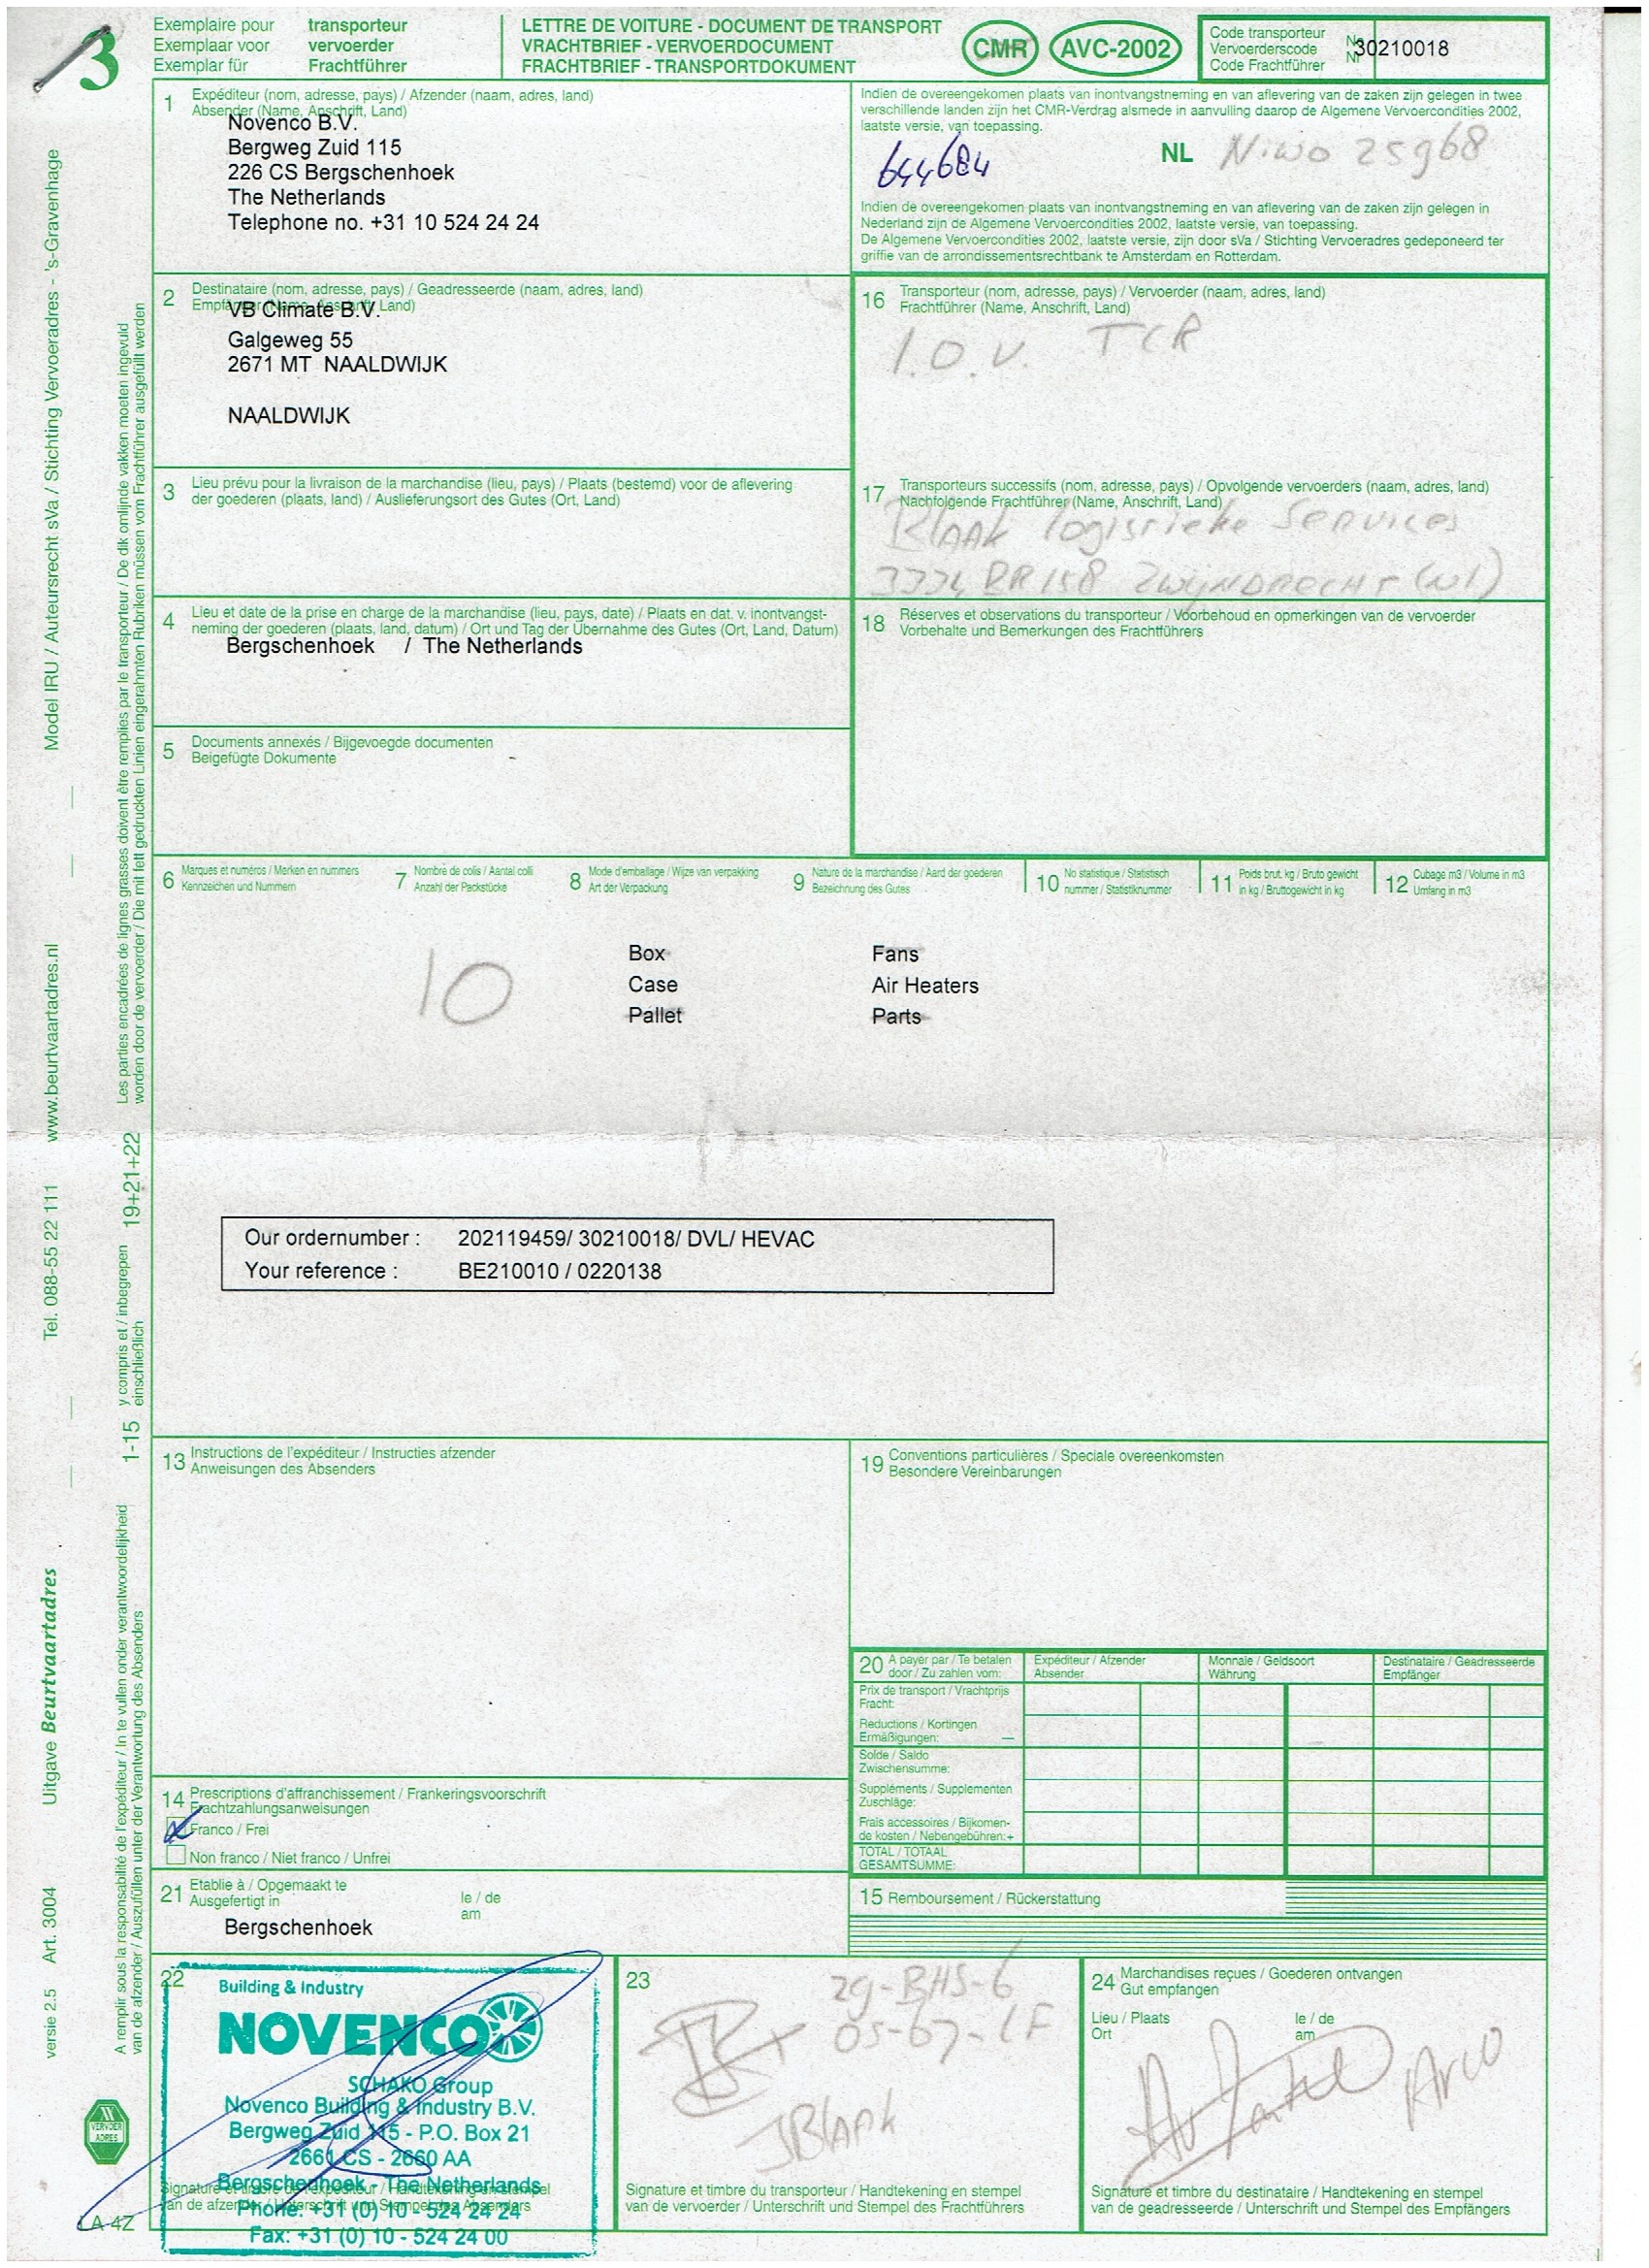 3
Exemplaire pour transporteur
Exemplaar voor vervoerder
Exemplar für Frachtführer
LETTRE DE VOITURE - DOCUMENT DE TRANSPORT
VRACHTBRIEF - VERVOERDOCUMENT
FRACHTBRIEF - TRANSPORTDOKUMENT
CMR AVC-2002
Code transporteur
Vervoerderscode
Code Frachtführer
30210018
1 Expéditeur (nom, adresse, pays) / Afzender (naam, adres, land)
Absender (Name, Anschrift, Land)
Novenco B.V.
Bergweg Zuid 115
226 CS Bergschenhoek
The Netherlands
Telephone no. +31 10 524 24 24
Indien de overeengekomen plaats van inontvangstneming en van aflevering van de zaken zijn gelegen in twee
verschillende landen zijn het CMR-Verdrag alsmede in aanvulling daarop de Algemene Vervoercondities 2002,
laatste versie, van toepassing.
644684
NL Niwo 25968
Indien de overeengekomen plaats van inontvangstneming en van aflevering van de zaken zijn gelegen in
Nederland zijn de Algemene Vervoercondities 2002, laatste versie, van toepassing.
De Algemene Vervoercondities 2002, laatste versie, zijn door sVa / Stichting Vervoeradres gedeponeerd ter
griffie van de arrondissementsrechtbank te Amsterdam en Rotterdam.
2 Destinataire (nom, adresse, pays) / Geadresseerde (naam, adres, land)
Empfänger (Name, Anschrift, Land)
VB Climate B.V.
Galgeweg 55
2671 MT NAALDWIJK
NAALDWIJK
16 Transporteur (nom, adresse, pays) / Vervoerder (naam, adres, land)
Frachtführer (Name, Anschrift, Land)
I.O.V. TCR
3 Lieu prévu pour la livraison de la marchandise (lieu, pays) / Plaats (bestemd) voor de aflevering
der goederen (plaats, land) / Auslieferungsort des Gutes (Ort, Land)
17 Transporteurs successifs (nom, adresse, pays) / Opvolgende vervoerders (naam, adres, land)
Nachfolgende Frachtführer (Name, Anschrift, Land)
Blaak logistieke Services
Zwijndrecht (nl)
4 Lieu et date de la prise en charge de la marchandise (lieu, pays, date) / Plaats en dat. v. inontvangst-
neming der goederen (plaats, land, datum) / Ort und Tag der Übernahme des Gutes (Ort, Land, Datum)
Bergschenhoek / The Netherlands
18 Réserves et observations du transporteur / Voorbehoud en opmerkingen van de vervoerder
Vorbehalte und Bemerkungen des Frachtführers
5 Documents annexés / Bijgevoegde documenten
Beigefügte Dokumente
6 Marques et numéros / Merken en nummers
Kennzeichen und Nummern
7 Nombre de colis / Aantal colli
Anzahl der Packstücke
8 Mode d'emballage / Wijze van verpakking
Art der Verpackung
9 Nature de la marchandise / Aard der goederen
Bezeichnung des Gutes
10 No statistique / Statistisch
nummer / Statistiknummer
11 Poids brut. kg / Bruto gewicht
in kg / Bruttogewicht in kg
12 Cubage m3 / Volume in m3
Umfang in m3
10
Box Fans
Case Air Heaters
Pallet Parts
Our ordernumber : 202119459/ 30210018/ DVL/ HEVAC
Your reference : BE210010 / 0220138
13 Instructions de l'expéditeur / Instructies afzender
Anweisungen des Absenders
19 Conventions particulières / Speciale overeenkomsten
Besondere Vereinbarungen
20 A payer par / Te betalen
door / Zu zahlen vom:
Expéditeur / Afzender
Absender
Monnaie / Geldsoort
Währung
Destinataire / Geadresseerde
Empfänger
Prix de transport / Vrachtprijs
Fracht:
Reductions / Kortingen
Ermäßigungen: —
Solde / Saldo
Zwischensumme:
Suppléments / Supplementen
Zuschläge:
Frais accessoires / Bijkomen-
de kosten / Nebengebühren:+
TOTAL / TOTAAL
GESAMTSUMME:
14 Prescriptions d'affranchissement / Frankeringsvoorschrift
Frachtzahlungsanweisungen
Franco / Frei
Non franco / Niet franco / Unfrei
21 Etablie à / Opgemaakt te
Ausgefertigt in
le / de
am
Bergschenhoek
15 Remboursement / Rückerstattung
22
Building & Industry
NOVENCO
SCHAKO Group
Novenco Building & Industry B.V.
Bergweg Zuid 115 - P.O. Box 21
2661 CS - 2660 AA
Bergschenhoek - The Netherlands
Phone: +31 (0) 10 - 524 24 24
Fax: +31 (0) 10 - 524 24 00
Signature et timbre de l'expéditeur / Handtekening en stempel
van de afzender / Unterschrift und Stempel des Absenders
23
29-BHS-6
05-67-LF
JBlaak
Signature et timbre du transporteur / Handtekening en stempel
van de vervoerder / Unterschrift und Stempel des Frachtführers
24 Marchandises reçues / Goederen ontvangen
Gut empfangen
Lieu / Plaats
Ort
le / de
am
Arco
Signature et timbre du destinataire / Handtekening en stempel
van de geadresseerde / Unterschrift und Stempel des Empfängers
LA 4Z
VERVOER
ADRES
versie 2.5 Art. 3004 Uitgave Beurtvaartadres Tel. 088-55 22 111 www.beurtvaartadres.nl Model IRU / Auteursrecht sVa / Stichting Vervoeradres - 's-Gravenhage
A remplir sous la responsabilité de l'expéditeur / In te vullen onder verantwoordelijkheid
van de afzender / Auszufüllen unter der Verantwortung des Absenders
1-15 y compris et / inbegrepen
einschließlich
19+21+22
Les parties encadrées de lignes grasses doivent être remplies par le transporteur / De dik omlijnde vakken moeten ingevuld
worden door de vervoerder / Die mit fett gedruckten Linien eingerahmten Rubriken müssen vom Frachtführer ausgefüllt werden